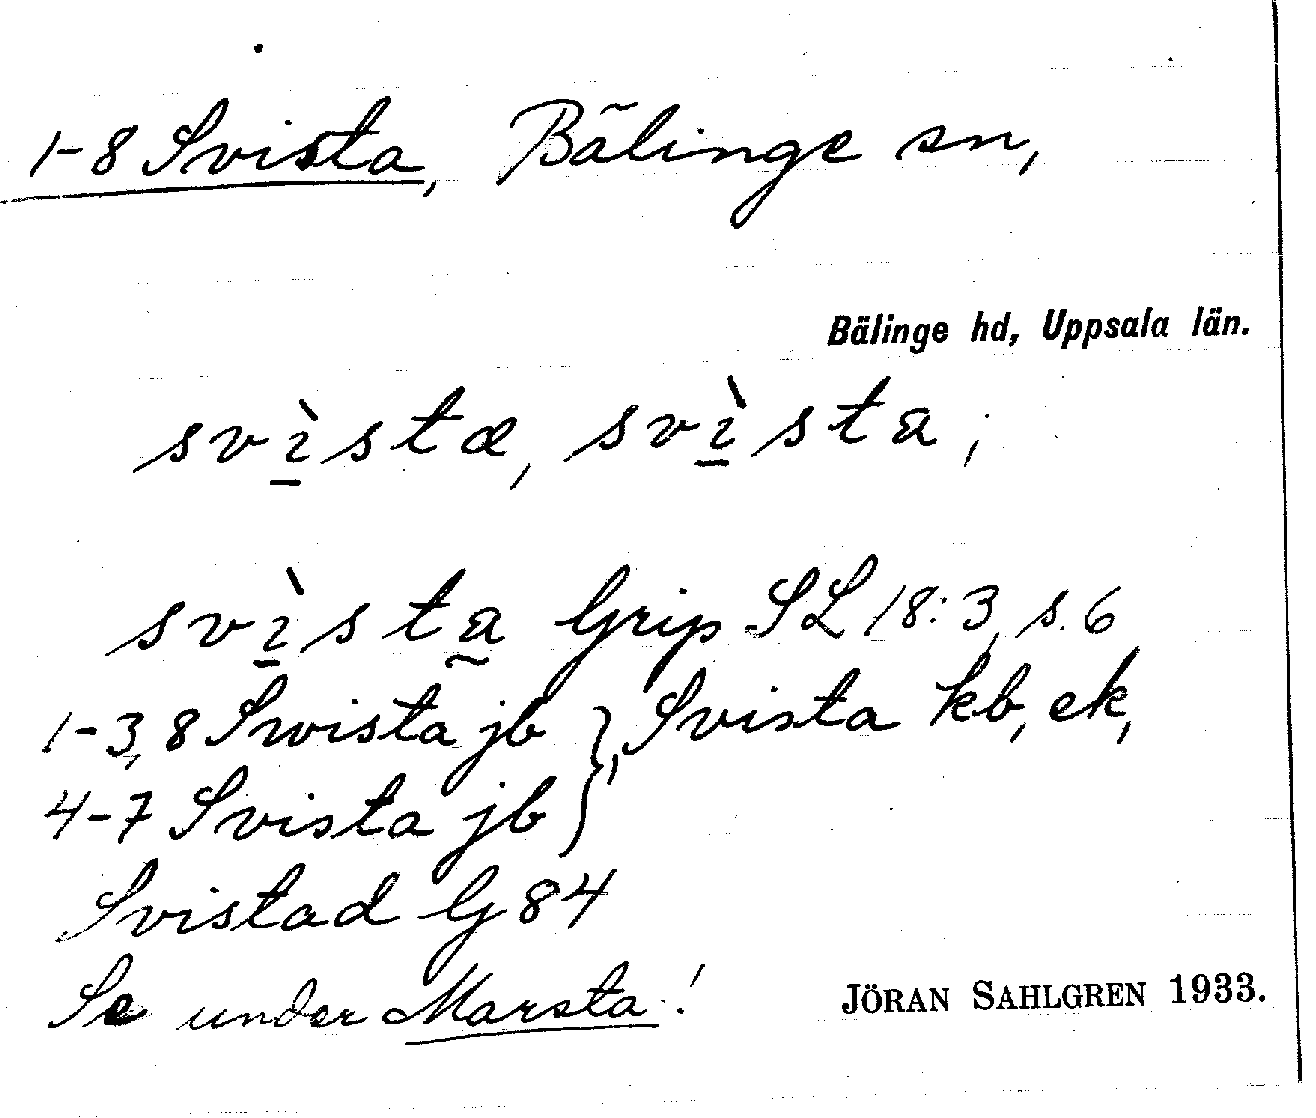 1-8 Svista, Bälinge sn,
Bälinge hd, Uppsala län.
svì̱stæ, svì̱sta,
svì̱sta̰ Grip SL 18:3, s. 6
1-3, 8 Swista jb }, Svista kb, ek,
4-7 Svista jb }
Svistad G 84
Se under Marsta!
JÖRAN SAHLGREN 1933.